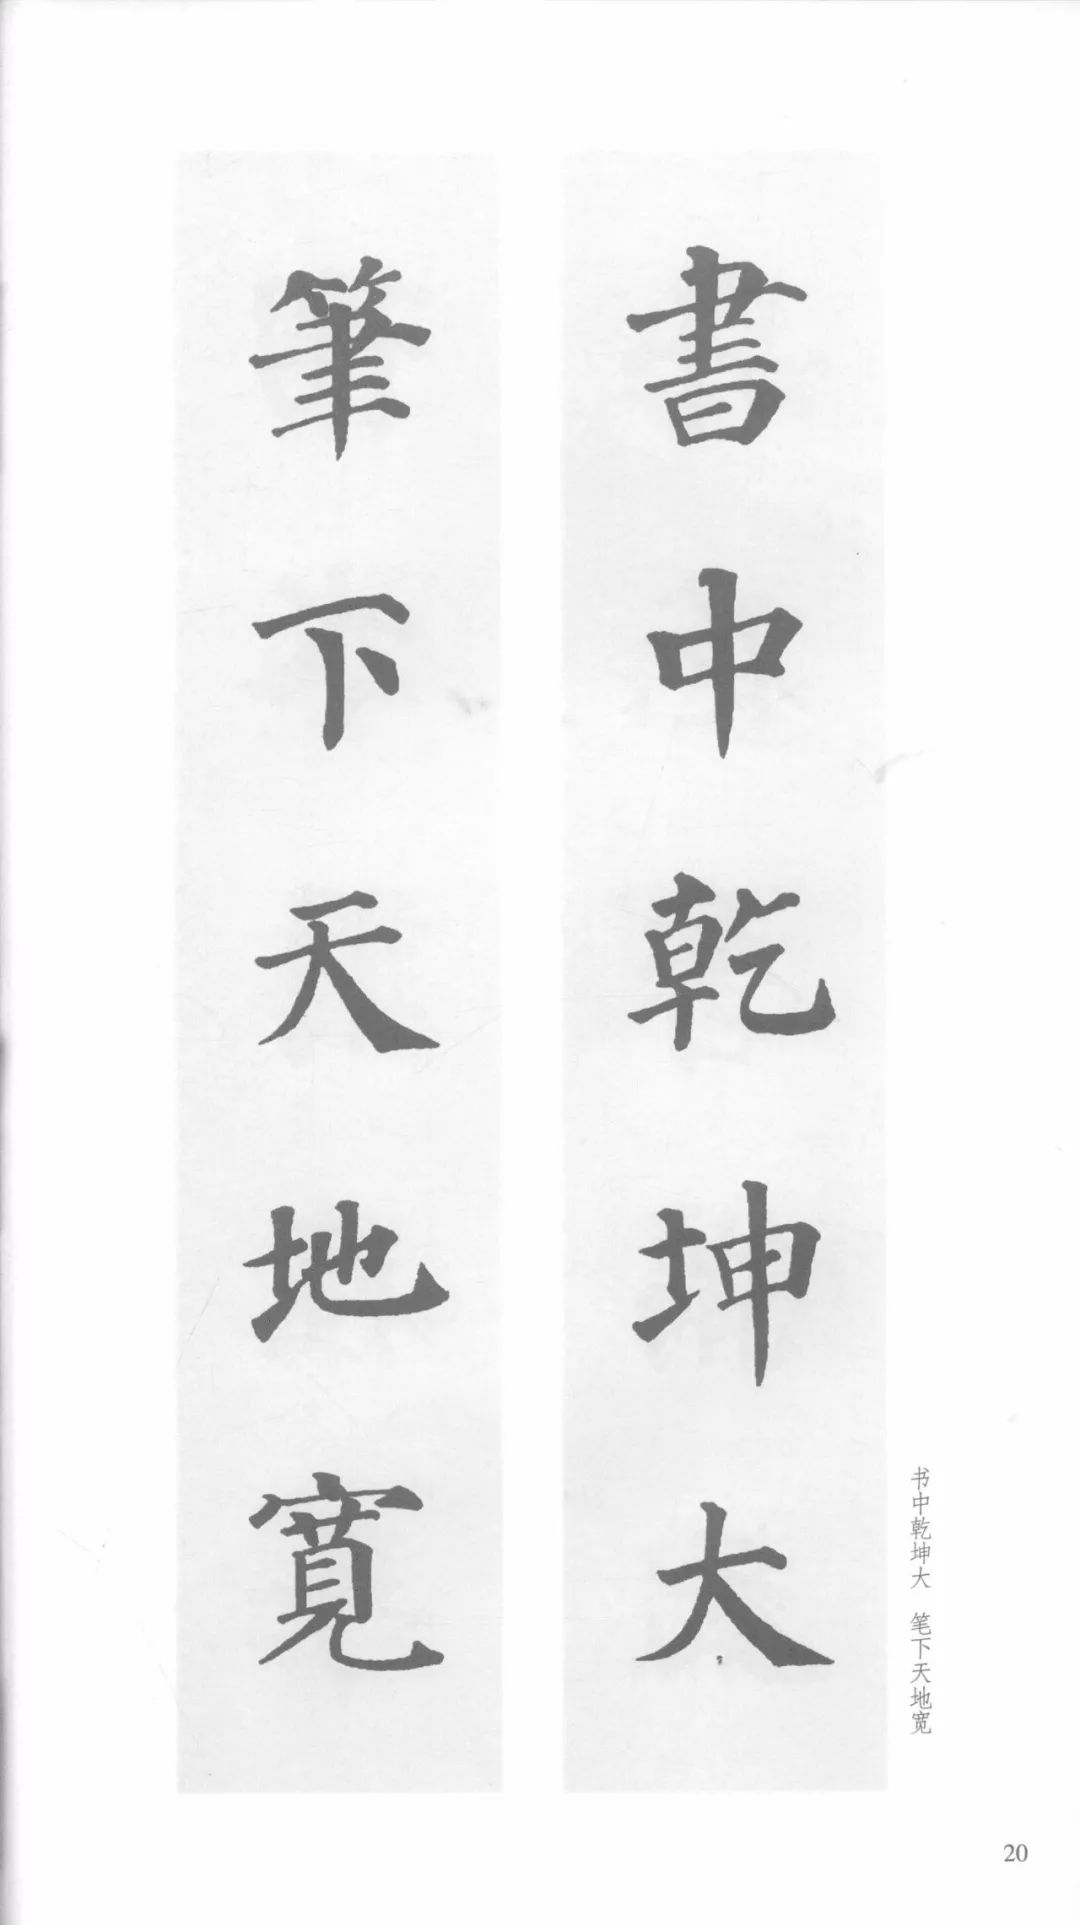 書中乾坤大
筆下天地寬
书中乾坤大 笔下天地宽
20